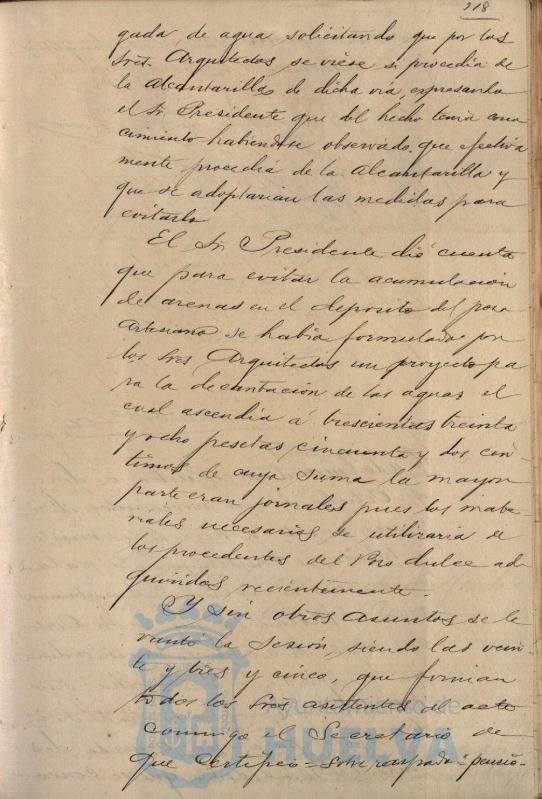 218
gada de agua solicitando que por los
Sres. Arquitectos se viese si procedia de
la Alcantarilla de dicha via, expresando
el Sr. Presidente que del hecho tenia cono
cimiento habiendose observado que efectiva
mente procedia de la Alcantarilla y
que se adoptarian las medidas para
evitarlo
El Sr. Presidente dió cuenta
que para evitar la acumulacion
de arenas en el deposito del pozo
Artesiano se habia formulado por
los Sres Arquitectos un proyecto pa
ra la decantacion de las aguas el
cual ascendia á trescientas treinta
y ocho pesetas cincuenta y dos cen
timos de cuya suma la mayor
parte eran jornales pues los mate
riales necesarios se utilizaria de
los procedentes del Pozo dulce ad
quiridos recientemente.
Y sin otros asuntos se le
vantó la Sesión, siendo las vein
te y tres y cinco, que firman
todos los Sres asistentes al acto
conmigo el Secretario de
que certifico = Sobre raspado "pensio-
Ayuntamiento de
HUELVA